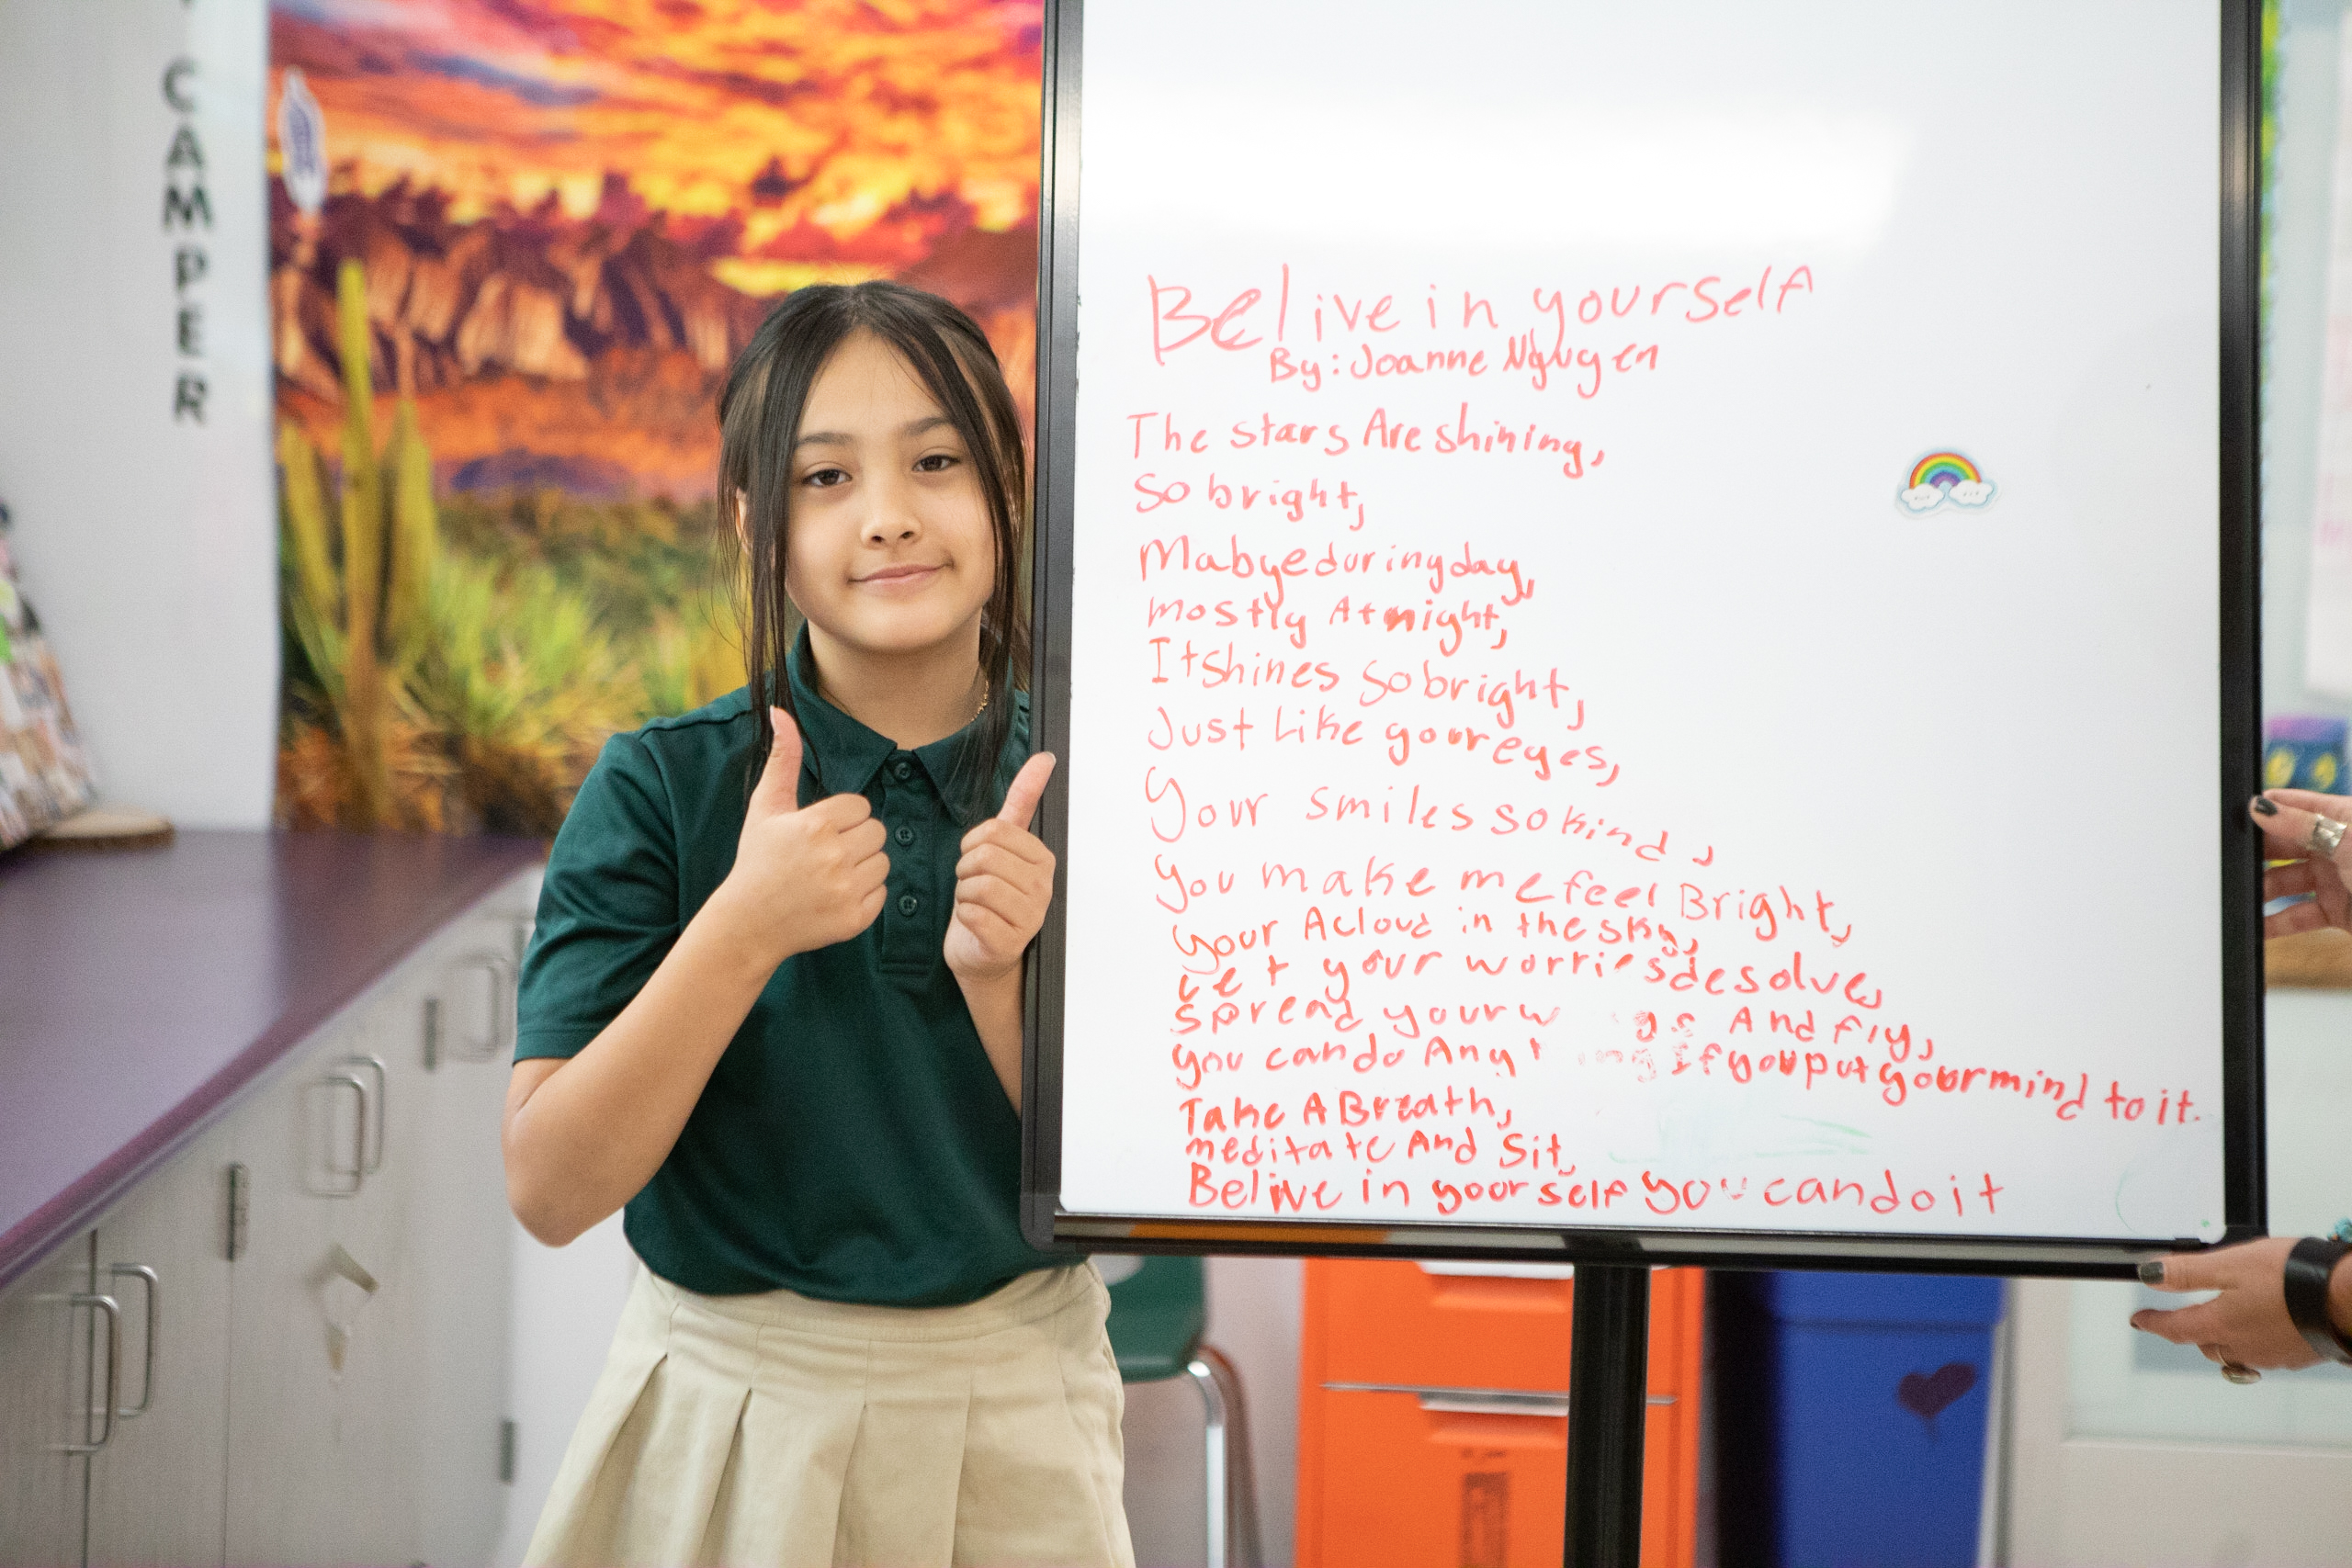 CAMPER
Belive in yourself
By: Joanne Nguyen
The stars Are shining,
So bright,
Mabye during day,
mostly At night,
It shines so bright,
Just Like your eyes,
Your smiles so kind,
You make me feel Bright,
your A cloud in the sky,
let your worries desolve,
spread your w gs And fly,
you can do Any t ing If you put your mind to it.
Take A Breath,
meditate And Sit,
Belive in yourself you can do it